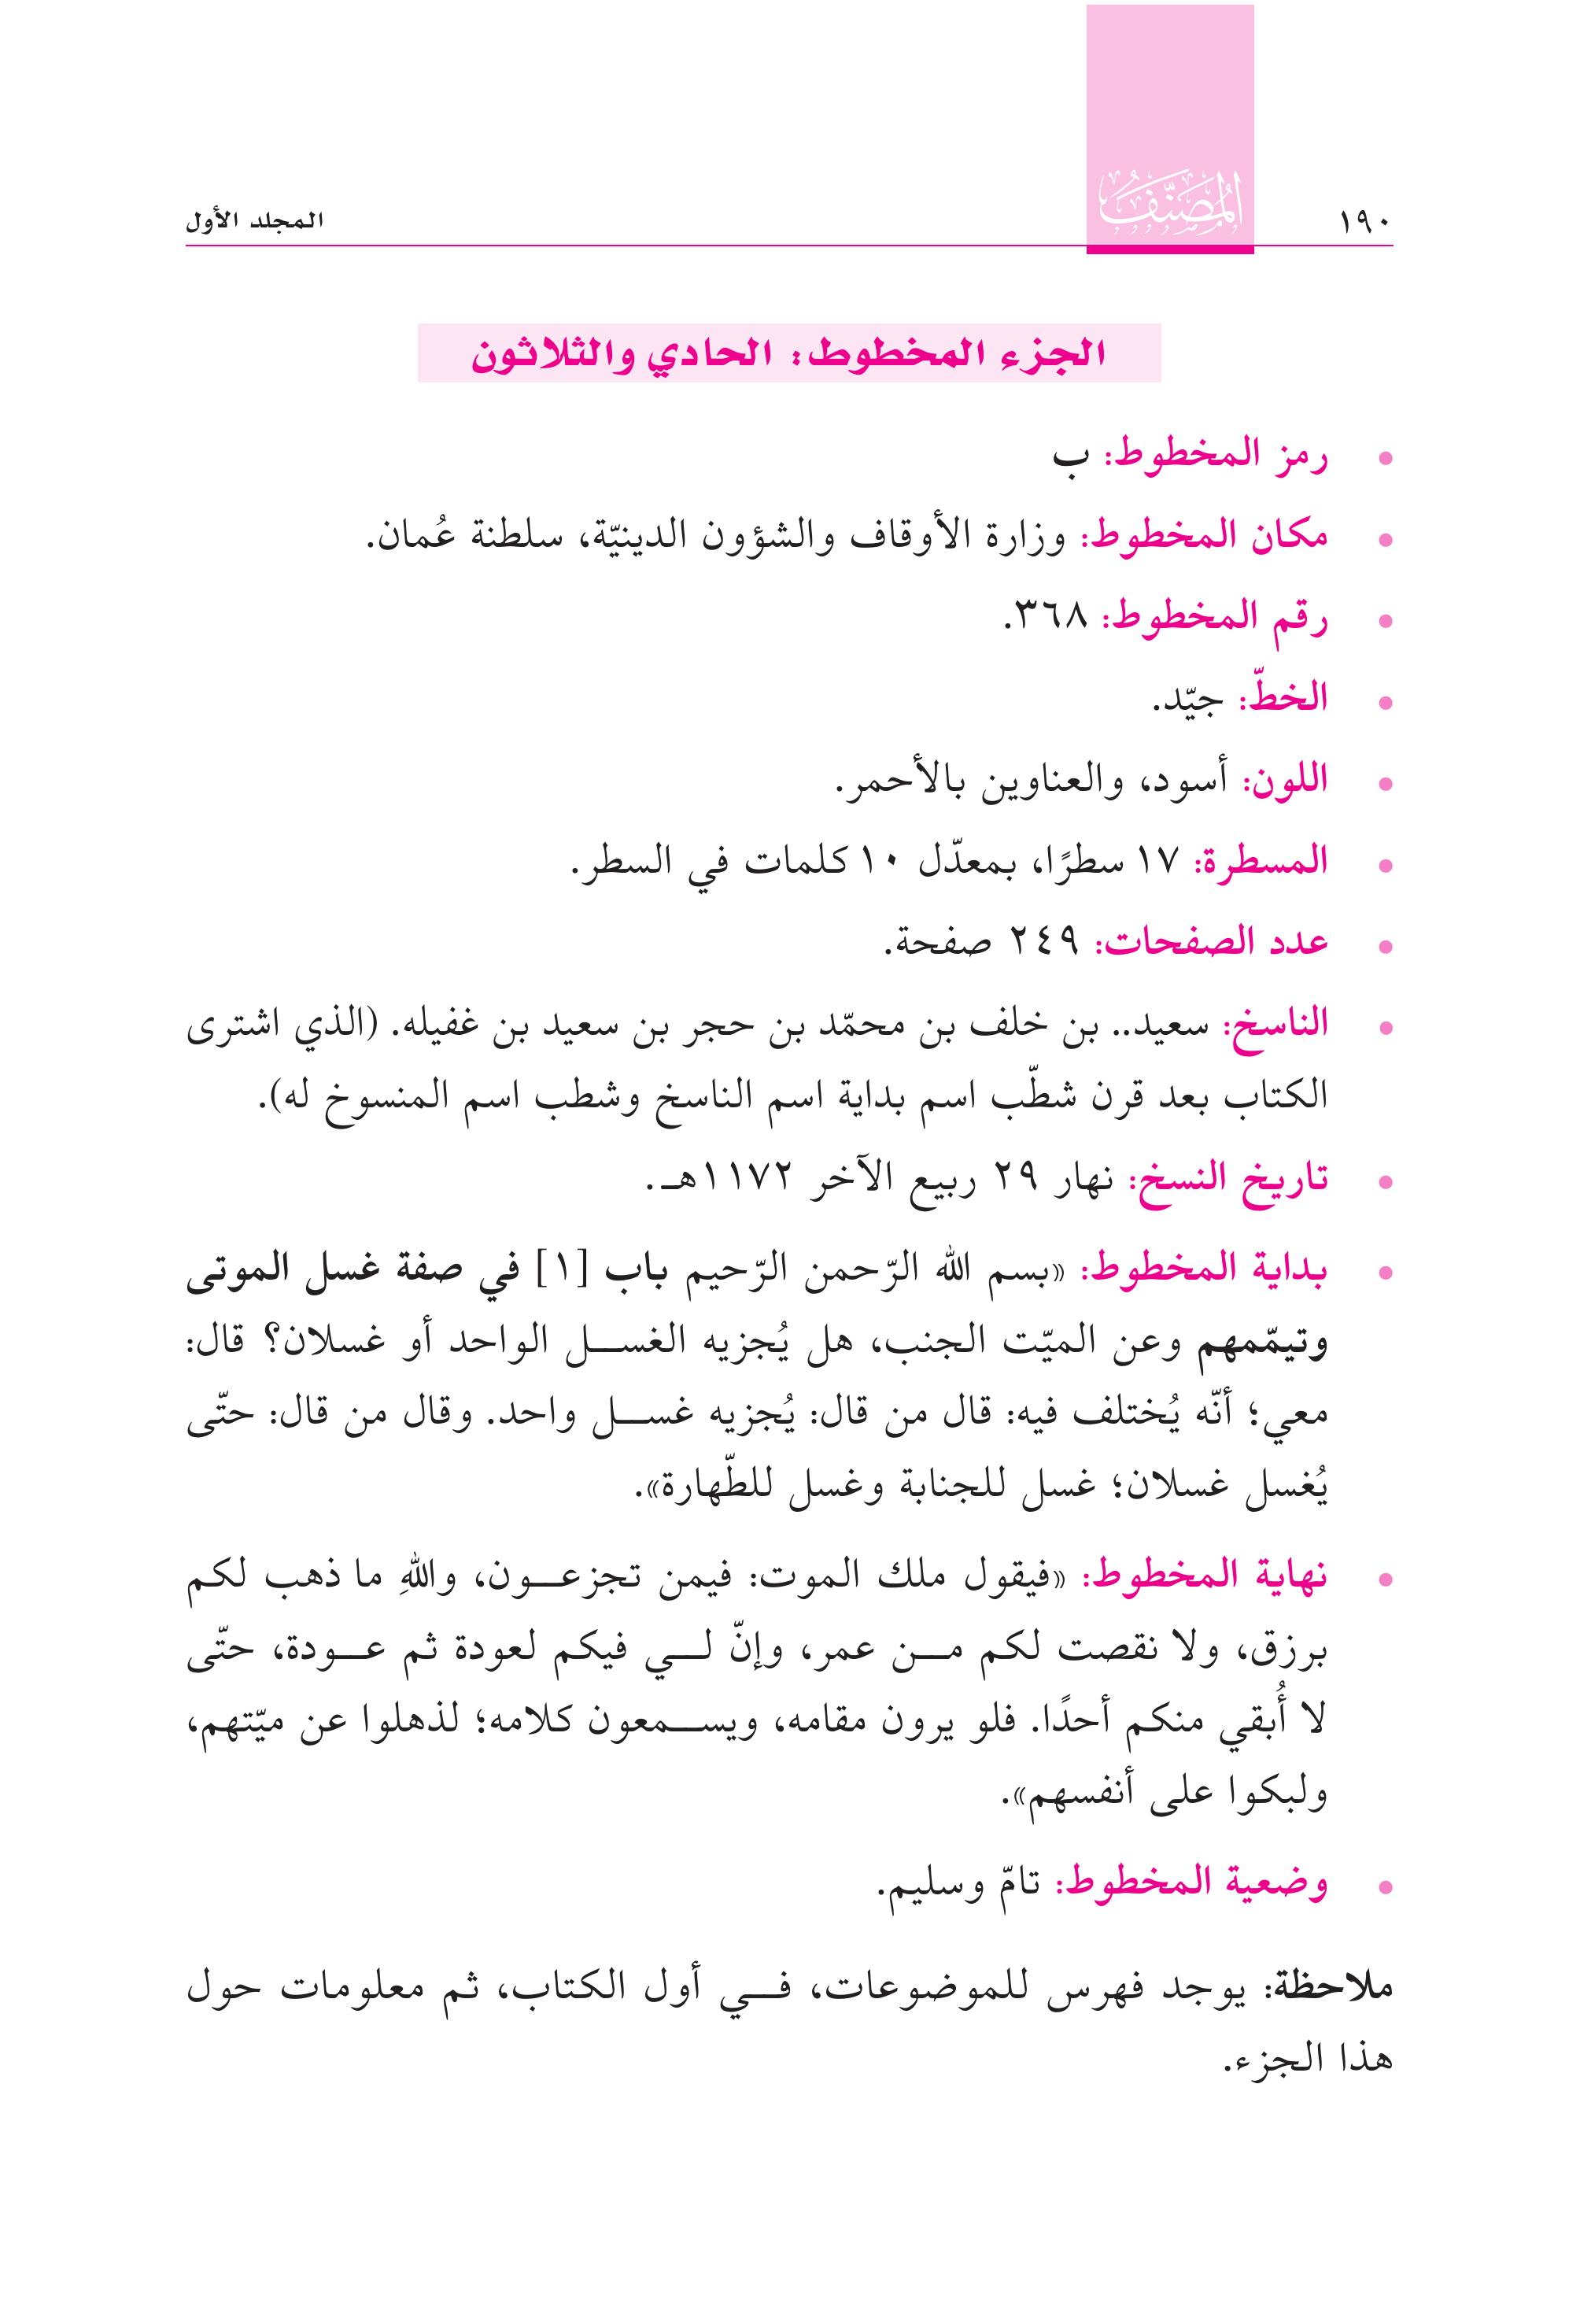 ١٩٠
المُصَنَّفُ
المجلد الأول
الجزء المخطوط: الحادي والثلاثون
• رمز المخطوط: ب
• مكان المخطوط: وزارة الأوقاف والشؤون الدينيّة، سلطنة عُمان.
• رقم المخطوط: ٣٦٨.
• الخطّ: جيّد.
• اللون: أسود، والعناوين بالأحمر.
• المسطرة: ١٧ سطرًا، بمعدّل ١٠ كلمات في السطر.
• عدد الصفحات: ٢٤٩ صفحة.
• الناسخ: سعيد.. بن خلف بن محمّد بن حجر بن سعيد بن غفيله. (الذي اشترى
الكتاب بعد قرن شطّب اسم بداية اسم الناسخ وشطب اسم المنسوخ له).
• تاريخ النسخ: نهار ٢٩ ربيع الآخر ١١٧٢هـ.
• بداية المخطوط: «بسم الله الرّحمن الرّحيم باب [١] في صفة غسل الموتى
وتيمّمهم وعن الميّت الجنب، هل يُجزيه الغسل الواحد أو غسلان؟ قال:
معي؛ أنّه يُختلف فيه: قال من قال: يُجزيه غسل واحد. وقال من قال: حتّى
يُغسل غسلان؛ غسل للجنابة وغسل للطّهارة».
• نهاية المخطوط: «فيقول ملك الموت: فيمن تجزعون، واللهِ ما ذهب لكم
برزق، ولا نقصت لكم من عمر، وإنّ لي فيكم لعودة ثم عودة، حتّى
لا أُبقي منكم أحدًا. فلو يرون مقامه، ويسمعون كلامه؛ لذهلوا عن ميّتهم،
ولبكوا على أنفسهم».
• وضعية المخطوط: تامّ وسليم.
ملاحظة: يوجد فهرس للموضوعات، في أول الكتاب، ثم معلومات حول
هذا الجزء.